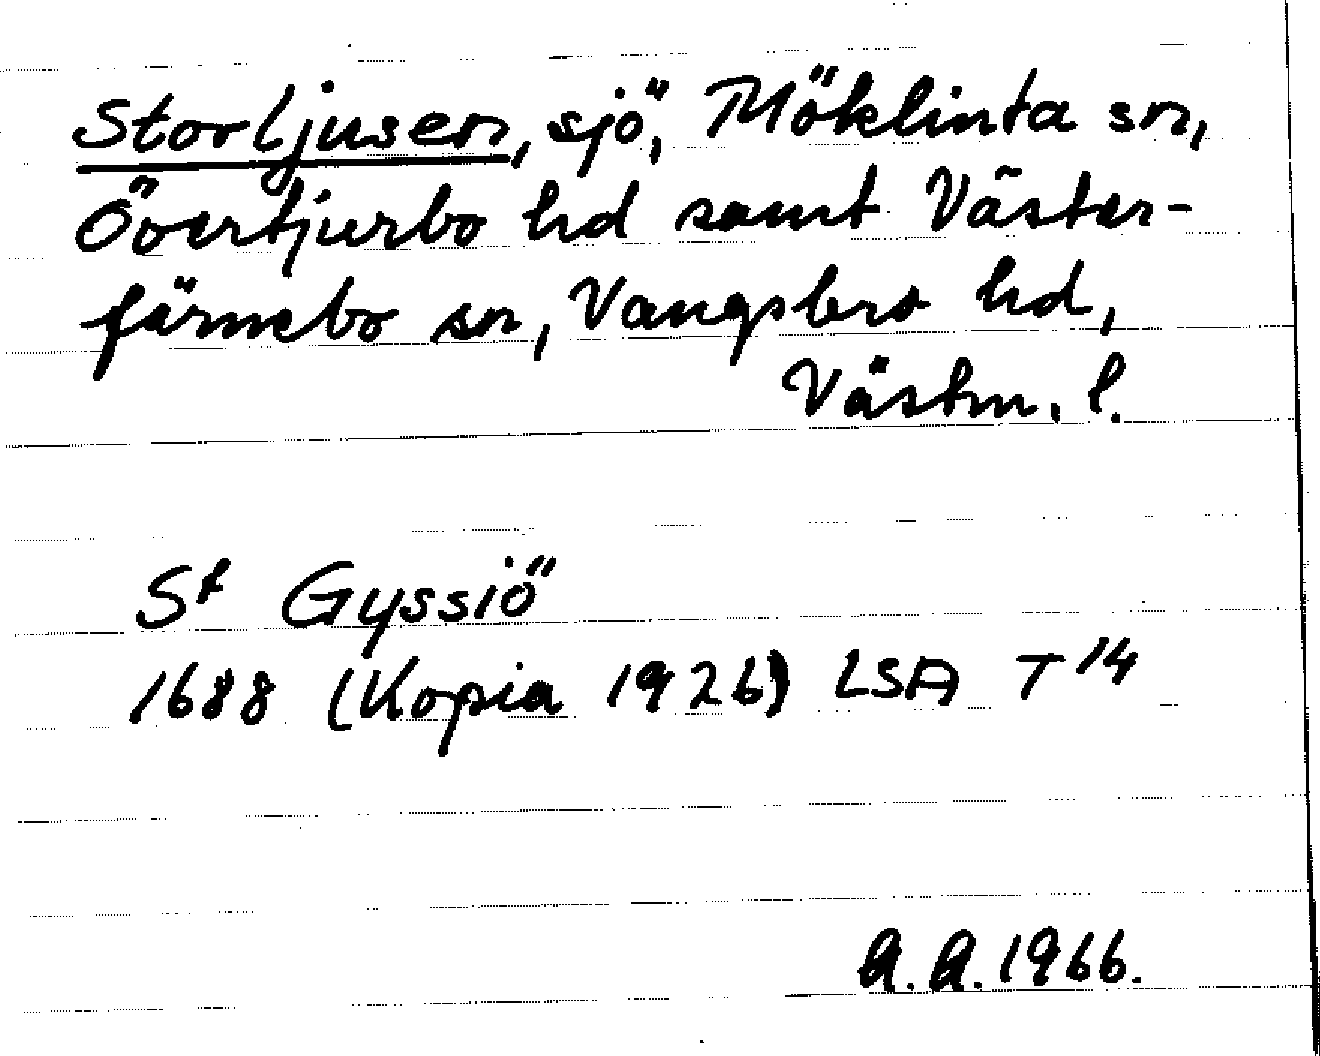 Storljusen, sjö, Möklinta sn,
Övertjurbo hd samt Väster-
färnebo sn, Vangsbro hd,
Västm. l.
St Gyssiö
1688 (Kopia 1926) LSA T 14
A.A. 1966.